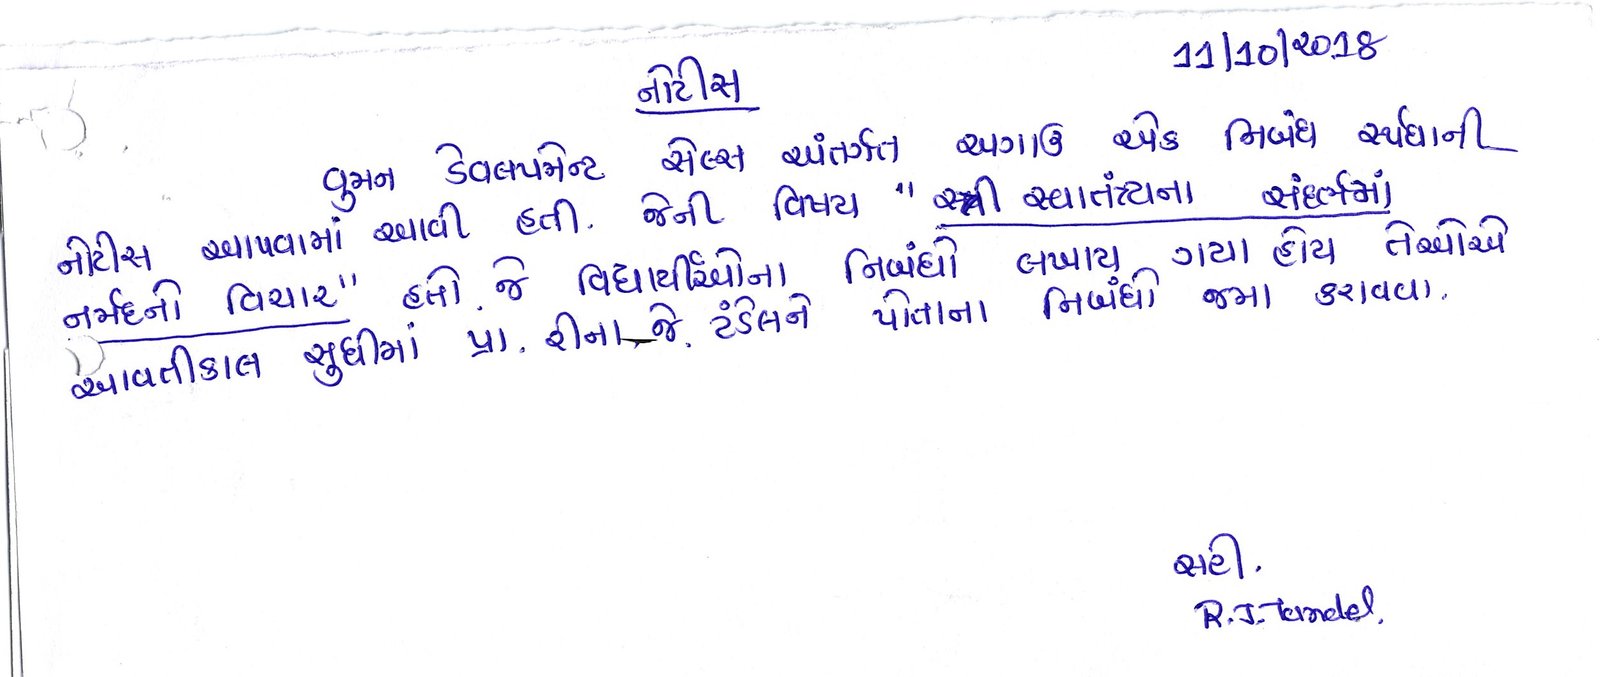 11/10/2018
નોટીસ
વુમન ડેવલપમેન્ટ સેલ્સ અંતર્ગત અગાઉ એક નિબંધ સ્પર્ધાની
નોટીસ આપવામાં આવી હતી. જેની વિષય "સ્ત્રી સ્વાતંત્ર્યના સંદર્ભમાં
નર્મદનો વિચાર" હતો. જે વિદ્યાર્થીઓના નિબંધો લખાય ગયા હોય તેઓએ
આવતીકાલ સુધીમાં પ્રા. રીના જે. ટંડેલને પોતાના નિબંધો જમા કરાવવા.
સહી.
R.J.Tandel.